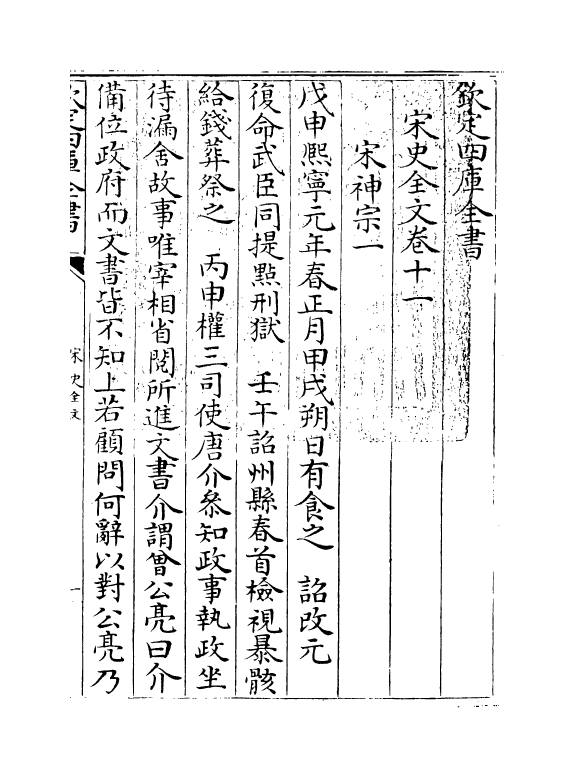 欽定四庫全書
宋史全文卷十一
宋神宗一
戊申熙寧元年春正月甲戌朔日有食之 詔改元
復命武臣同提點刑獄 壬午詔州縣春首檢視暴骸
給錢葬祭之 丙申權三司使唐介叅知政事執政坐
待漏舍故事唯宰相省閱所進文書介謂曾公亮曰介
備位政府而文書皆不知上若顧問何辭以對公亮乃
欽定四庫全書
宋史全文
一